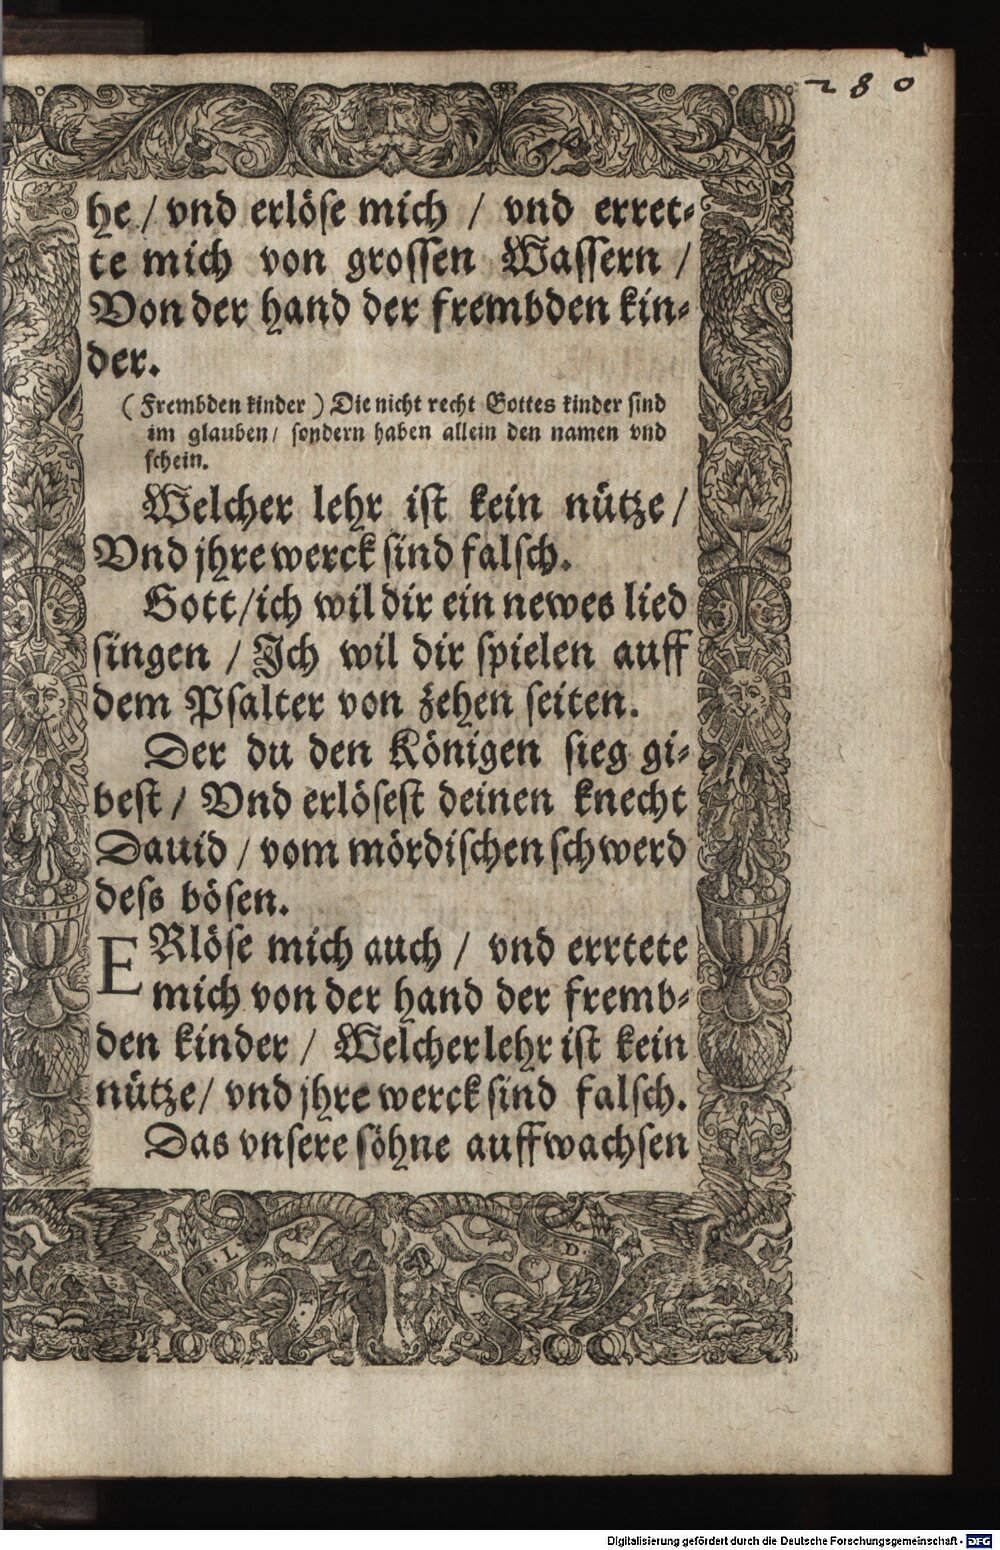 280
he / vnd erlöse mich / vnd erret-
te mich von grossen Wassern /
Von der hand der frembden kin-
der.
( Frembden kinder ) Die nicht recht Gottes kinder sind
im glauben / sondern haben allein den namen vnd
schein.
Welcher lehr ist kein nütze /
Vnd jhre werck sind falsch.
Gott / ich wil dir ein newes lied
singen / Ich wil dir spielen auff
dem Psalter von zehen seiten.
Der du den Königen sieg gi-
best / Vnd erlösest deinen knecht
Dauid / vom mördischen schwerd
dess bösen.
ERlöse mich auch / vnd errtete
mich von der hand der fremb-
den kinder / Welcher lehr ist kein
nütze / vnd jhre werck sind falsch.
Das vnsere söhne auffwachsen
Digitalisierung gefördert durch die Deutsche Forschungsgemeinschaft - DFG